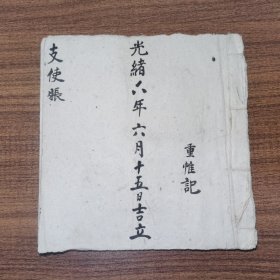 重惟記
光緒八年六月十五日吉立
支使賬